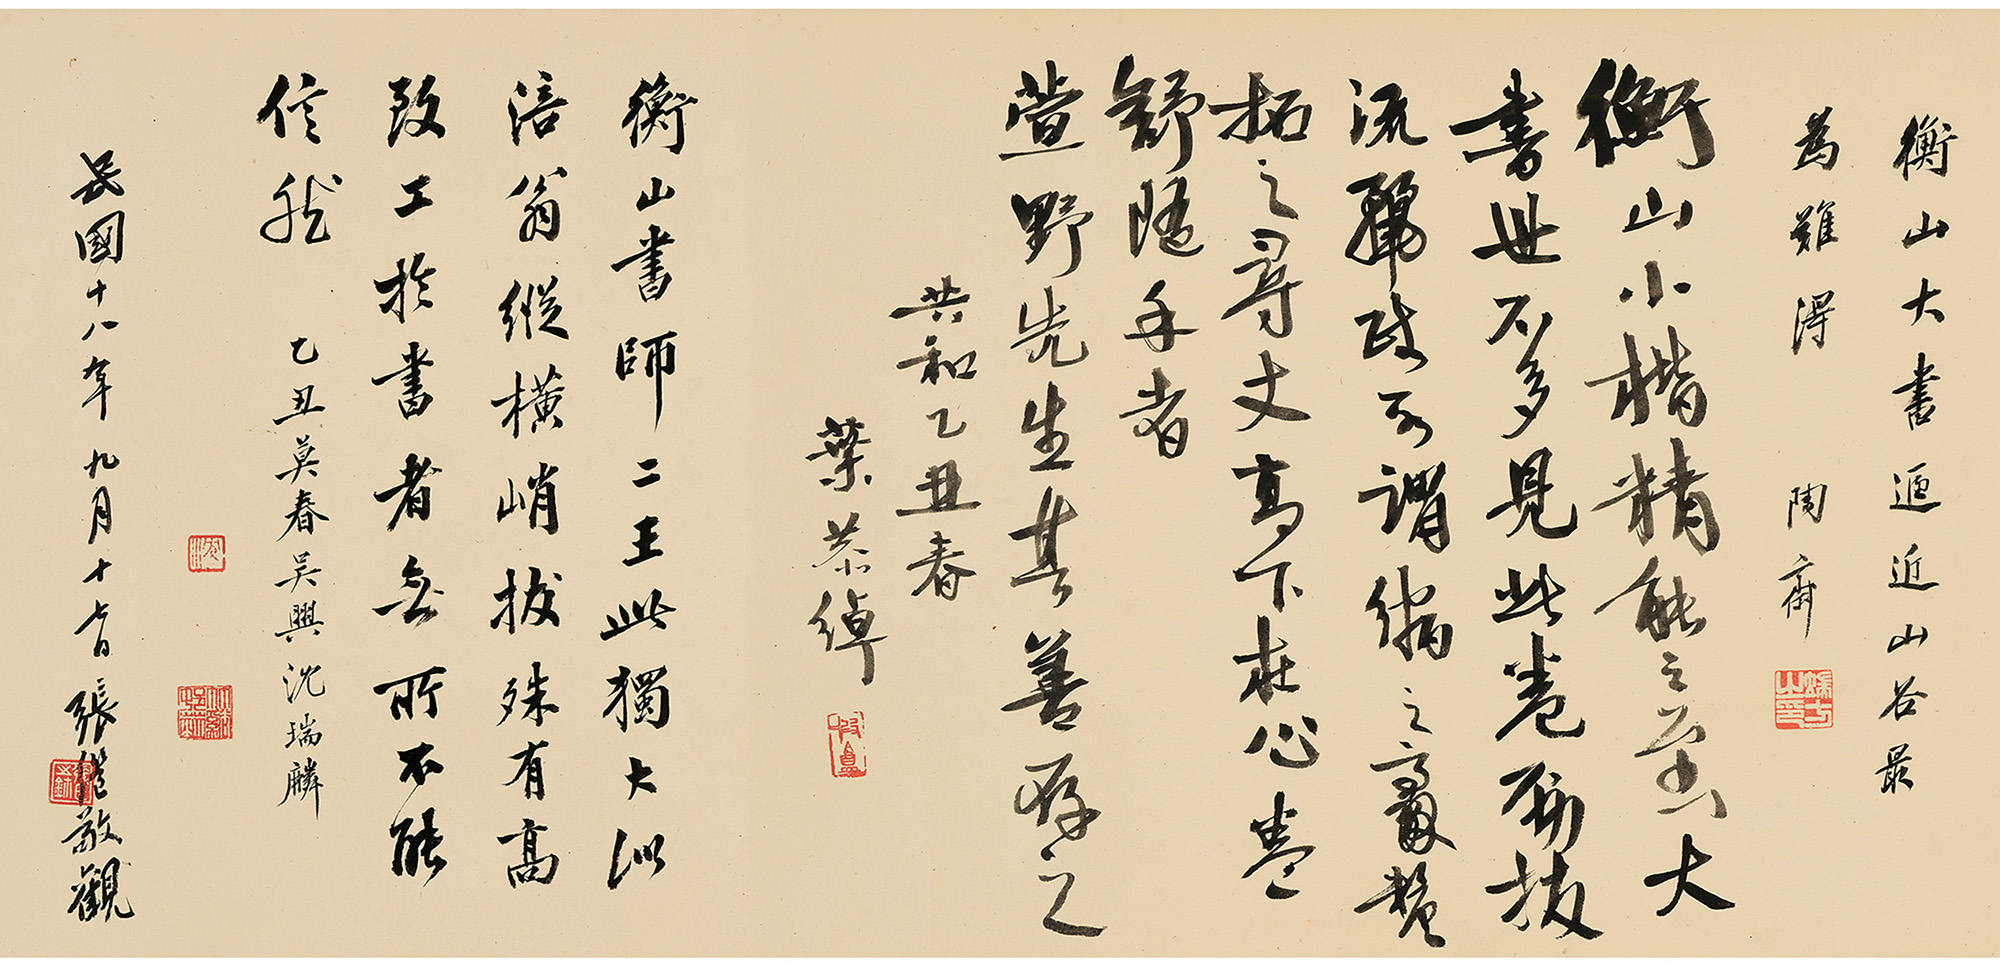 衡山大書逼近山谷最
為難得
陶齋
衡山小楷精能之至大
書世不多見此卷勁拔
流麗時可謂縮之毫釐
拓之尋丈高下在心卷
舒隨手者
萱野先生其善存之
共和乙丑春
葉恭綽
衡山書師二王此獨大似
涪翁縱橫峭拔殊有高
致工於書者無所不能
信然
乙丑莫春吳興沈瑞麟
民國十八年九月十七日
張繼敬觀